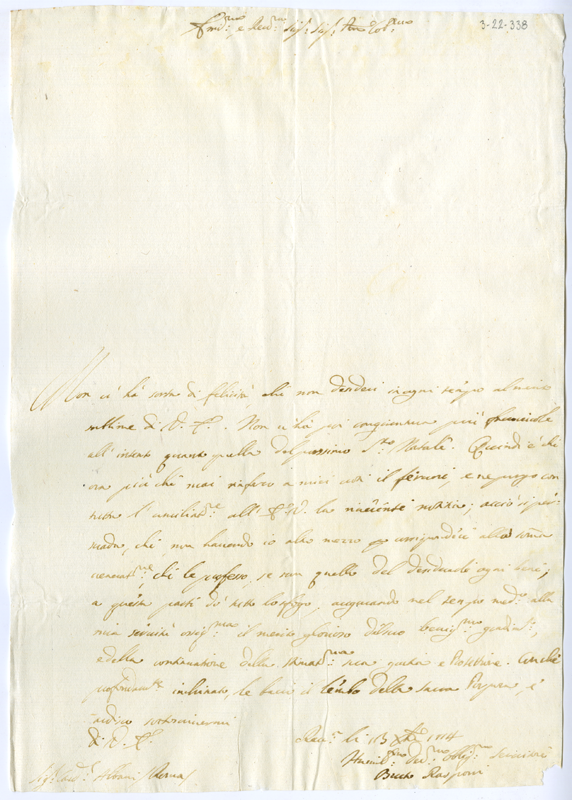 3-22-338
Em.mo e Rev.mo Sig.r Sig.r P.ron Col.mo
Non v'hà sorta di felicità, che non desideri in ogni tempo al merito
sublime di V. E. Non v'hà poi congiuntura più
all' intento quanto quella del prossimo S.to Natale. Quindi è che
ora più che mai rinforzo a miei voti il fervore, e ne porgo con
tutta l' all' E. V. la notizia; acciò si per-
suada, che non havendo io altro mezzo per corrispondere alla somma
veneraz.ne che le professo, se non quello del desiderarle ogni bene,
a questa parte dò tutto lo sfogo, acquistando nel tempo med.o alla
mia servitù il merito glorioso del suo benig.mo gradim.to,
e della continuatione della sua grazia e Protettione. Con che
profondam.te inchinato, le bacio il lembo della Sacra Porpora, e
ardisco sottoscrivermi
Di V. E.
Rav.a li 13 Xbre 1714
Humil.mo Dev.mo Oblig.mo Servitore
Sig.r Card.l Albani Roma
Rasponi